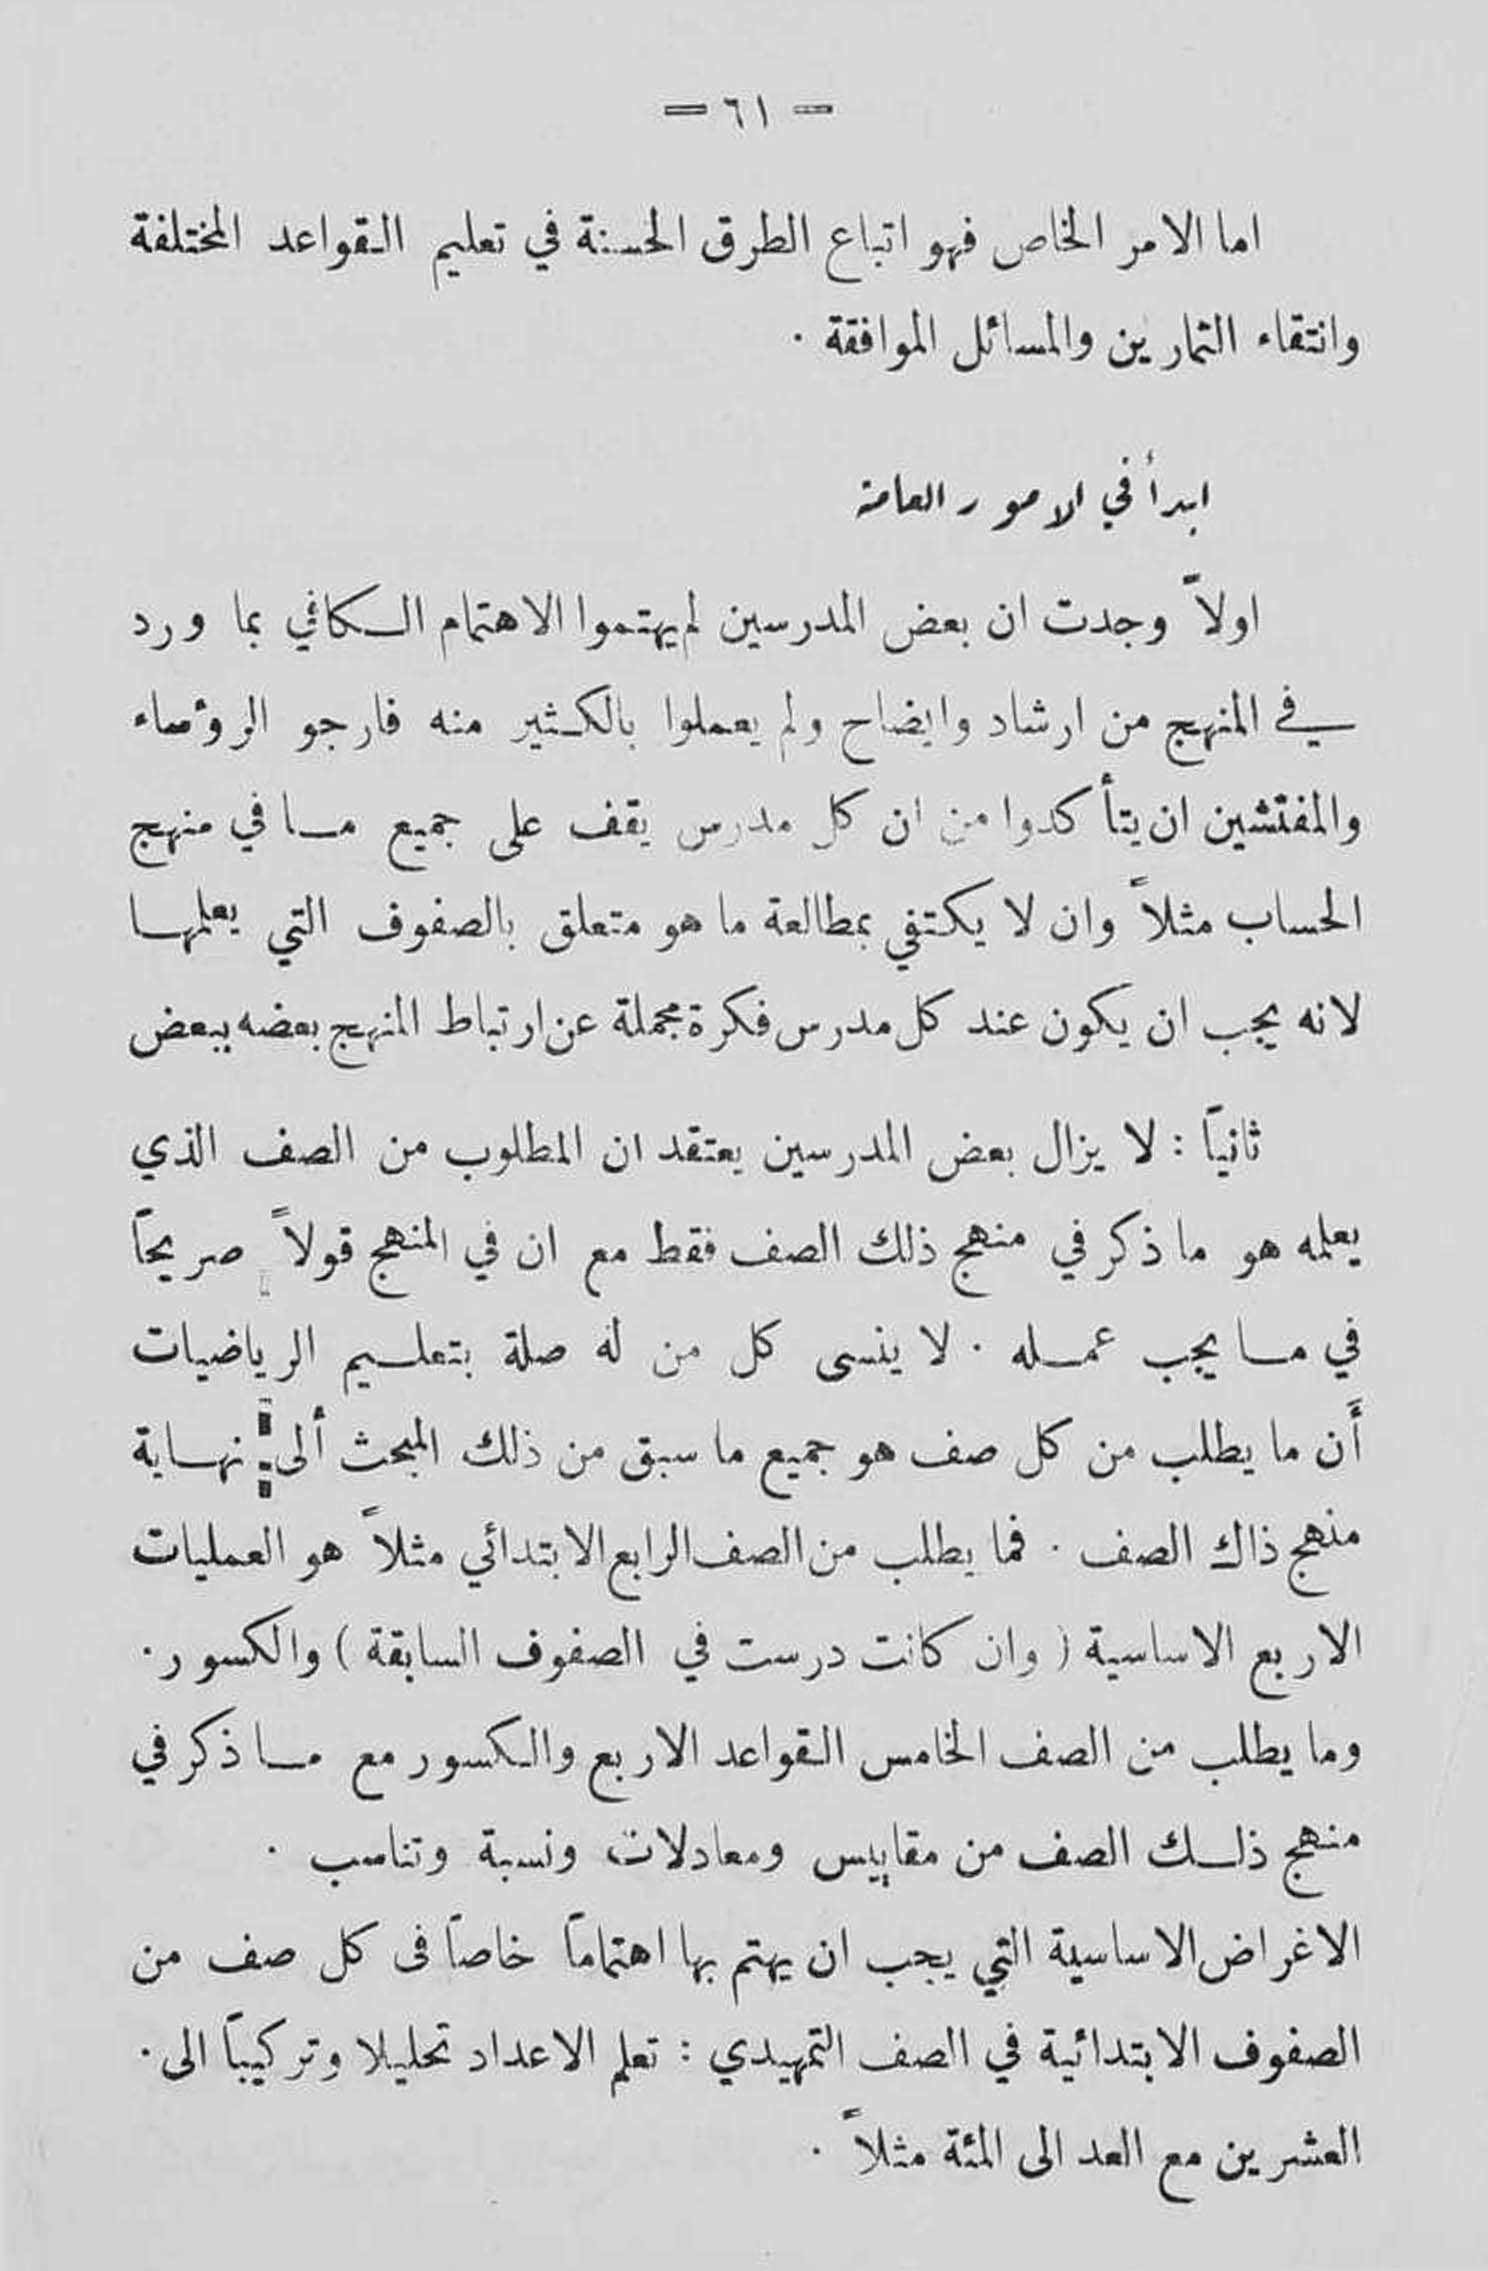 = ٦١ =
اما الامر الخاص فهو اتباع الطرق الحسنة في تعليم القواعد المختلفة
وانتقاء التمارين والمسائل الموافقة .
ابدأ في الامور العامة
اولاً وجدت ان بعض المدرسين لم يهتموا الاهتمام الكافي بما ورد
في المنهج من ارشاد وايضاح ولم يعملوا بالكثير منه فارجو الرؤساء
والمفتشين ان يتأكدوا من ان كل مدرس يقف على جميع ما في منهج
الحساب مثلاً وان لا يكتفي بمطالعة ما هو متعلق بالصفوف التي يعلمها
لانه يجب ان يكون عند كل مدرس فكرة مجملة عن ارتباط المنهج بعضه ببعض
ثانياً : لا يزال بعض المدرسين يعتقد ان المطلوب من الصف الذي
يعلمه هو ما ذكر في منهج ذلك الصف فقط مع ان في المنهج قولاً صريحاً
في ما يجب عمله . لا ينسى كل من له صلة بتعليم الرياضيات
أن ما يطلب من كل صف هو جميع ما سبق من ذلك المبحث ألى نهاية
منهج ذاك الصف . فما يطلب من الصف الرابع الابتدائي مثلاً هو العمليات
الاربع الاساسية ( وان كانت درست في الصفوف السابقة ) والكسور .
وما يطلب من الصف الخامس القواعد الاربع والكسور مع ما ذكر في
منهج ذلك الصف من مقاييس ومعادلات ونسبة وتناسب .
الاغراض الاساسية التي يجب ان يهتم بها اهتماماً خاصاً فى كل صف من
الصفوف الابتدائية في الصف التمهيدي : تعلم الاعداد تحليلا وتركيباً الى .
العشرين مع العد الى المئة مثلاً .